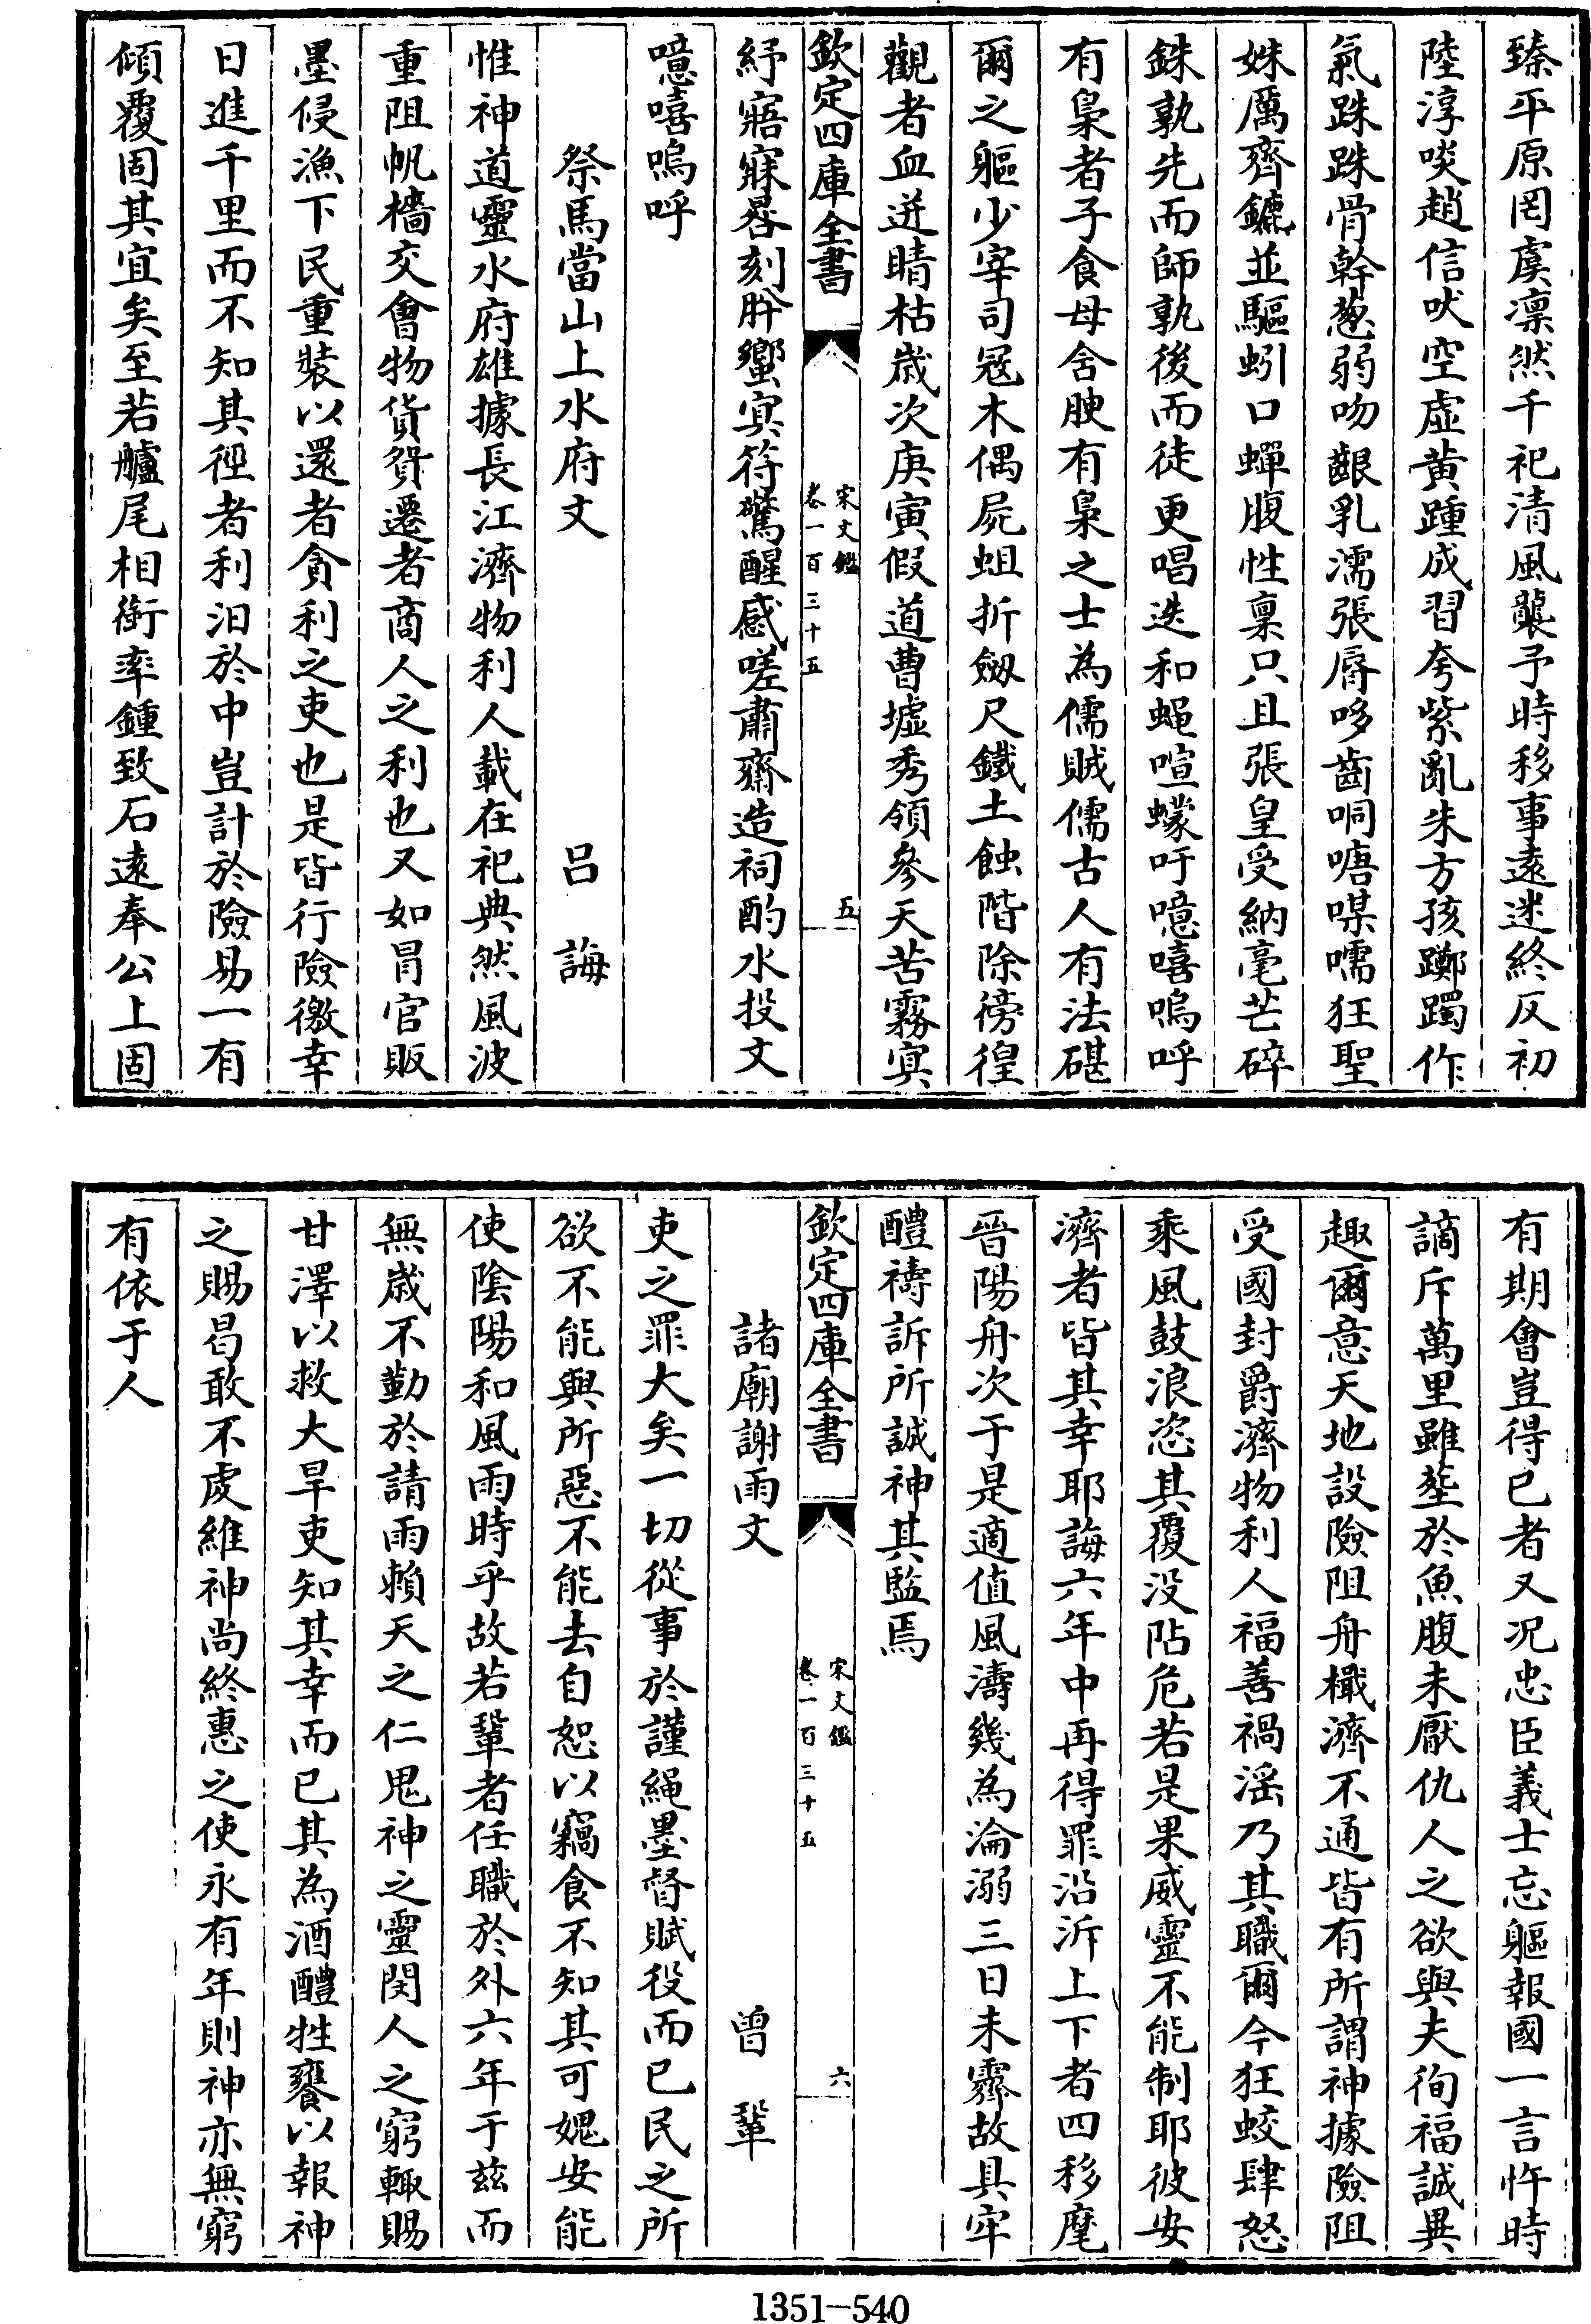 臻平原罔虞凛然千祀清風襲予時移事遠迷終反初
陸淳啖趙信吠空虛黃踵成習夸紫亂朱方孩躑躅作
氣跦跦骨幹葱弱吻齦乳濡張脣哆齒哃嘡㖼嚅狂聖
姝厲齊鑣並驅蚓口蟬腹性稟只且張皇受納毫芒碎
銖孰先而師孰後而徒更唱迭和蝇喧蠓吁噫嘻嗚呼
有梟者子食母舍腴有梟之士為儒賊儒古人有法磔
爾之軀少宰司冦木偶屍蛆折劔尺鐵土蝕階除徬徨
觀者血迸睛枯歲次庚寅假道曹墟秀領參天苦霧冥
欽定四庫全書
宋文鑑
卷一百三十五
五
紓寤寐晷刻肸蠁冥符驚醒感嗟肅齋造祠酌水投文
噫嘻嗚呼
祭馬當山上水府文 吕誨
惟神道靈水府雄據長江濟物利人載在祀典然風波
重阻帆檣交會物貨貿遷者商人之利也又如冐官販
墨侵漁下民重裝以還者貪利之吏也是皆行險徼幸
日進千里而不知其徑者利汨於中豈計於險易一有
傾覆固其宜矣至若艫尾相銜率鍾致石逺奉公上固
有期會豈得已者又况忠臣義士忘軀報國一言忤時
謫斥萬里雖塟於魚腹未厭仇人之欲與夫徇福誠異
趣爾意天地設險阻舟檝濟不通皆有所謂神據險阻
受國封爵濟物利人福善禍滛乃其職爾今狂蛟肆怒
乘風鼓浪恣其覆没阽危若是果威靈不能制耶彼安
濟者皆其幸耶誨六年中再得罪沿泝上下者四移麾
晉陽舟次于是適值風濤幾為淪溺三日未霽故具牢
醴禱訴所誠神其監焉
欽定四庫全書
宋文鑑
卷一百三十五
六
諸廟謝雨文 曾鞏
吏之罪大矣一切從事於謹繩墨督賦役而已民之所
欲不能與所惡不能去自恕以竊食不知其可媿安能
使陰陽和風雨時乎故若鞏者任職於外六年于兹而
無歲不勤於請雨賴天之仁鬼神之靈閔人之窮輙賜
甘澤以救大旱吏知其幸而已其為酒醴牲饔以報神
之賜曷敢不䖍維神尚終惠之使永有年則神亦無窮
有依于人
1351—540